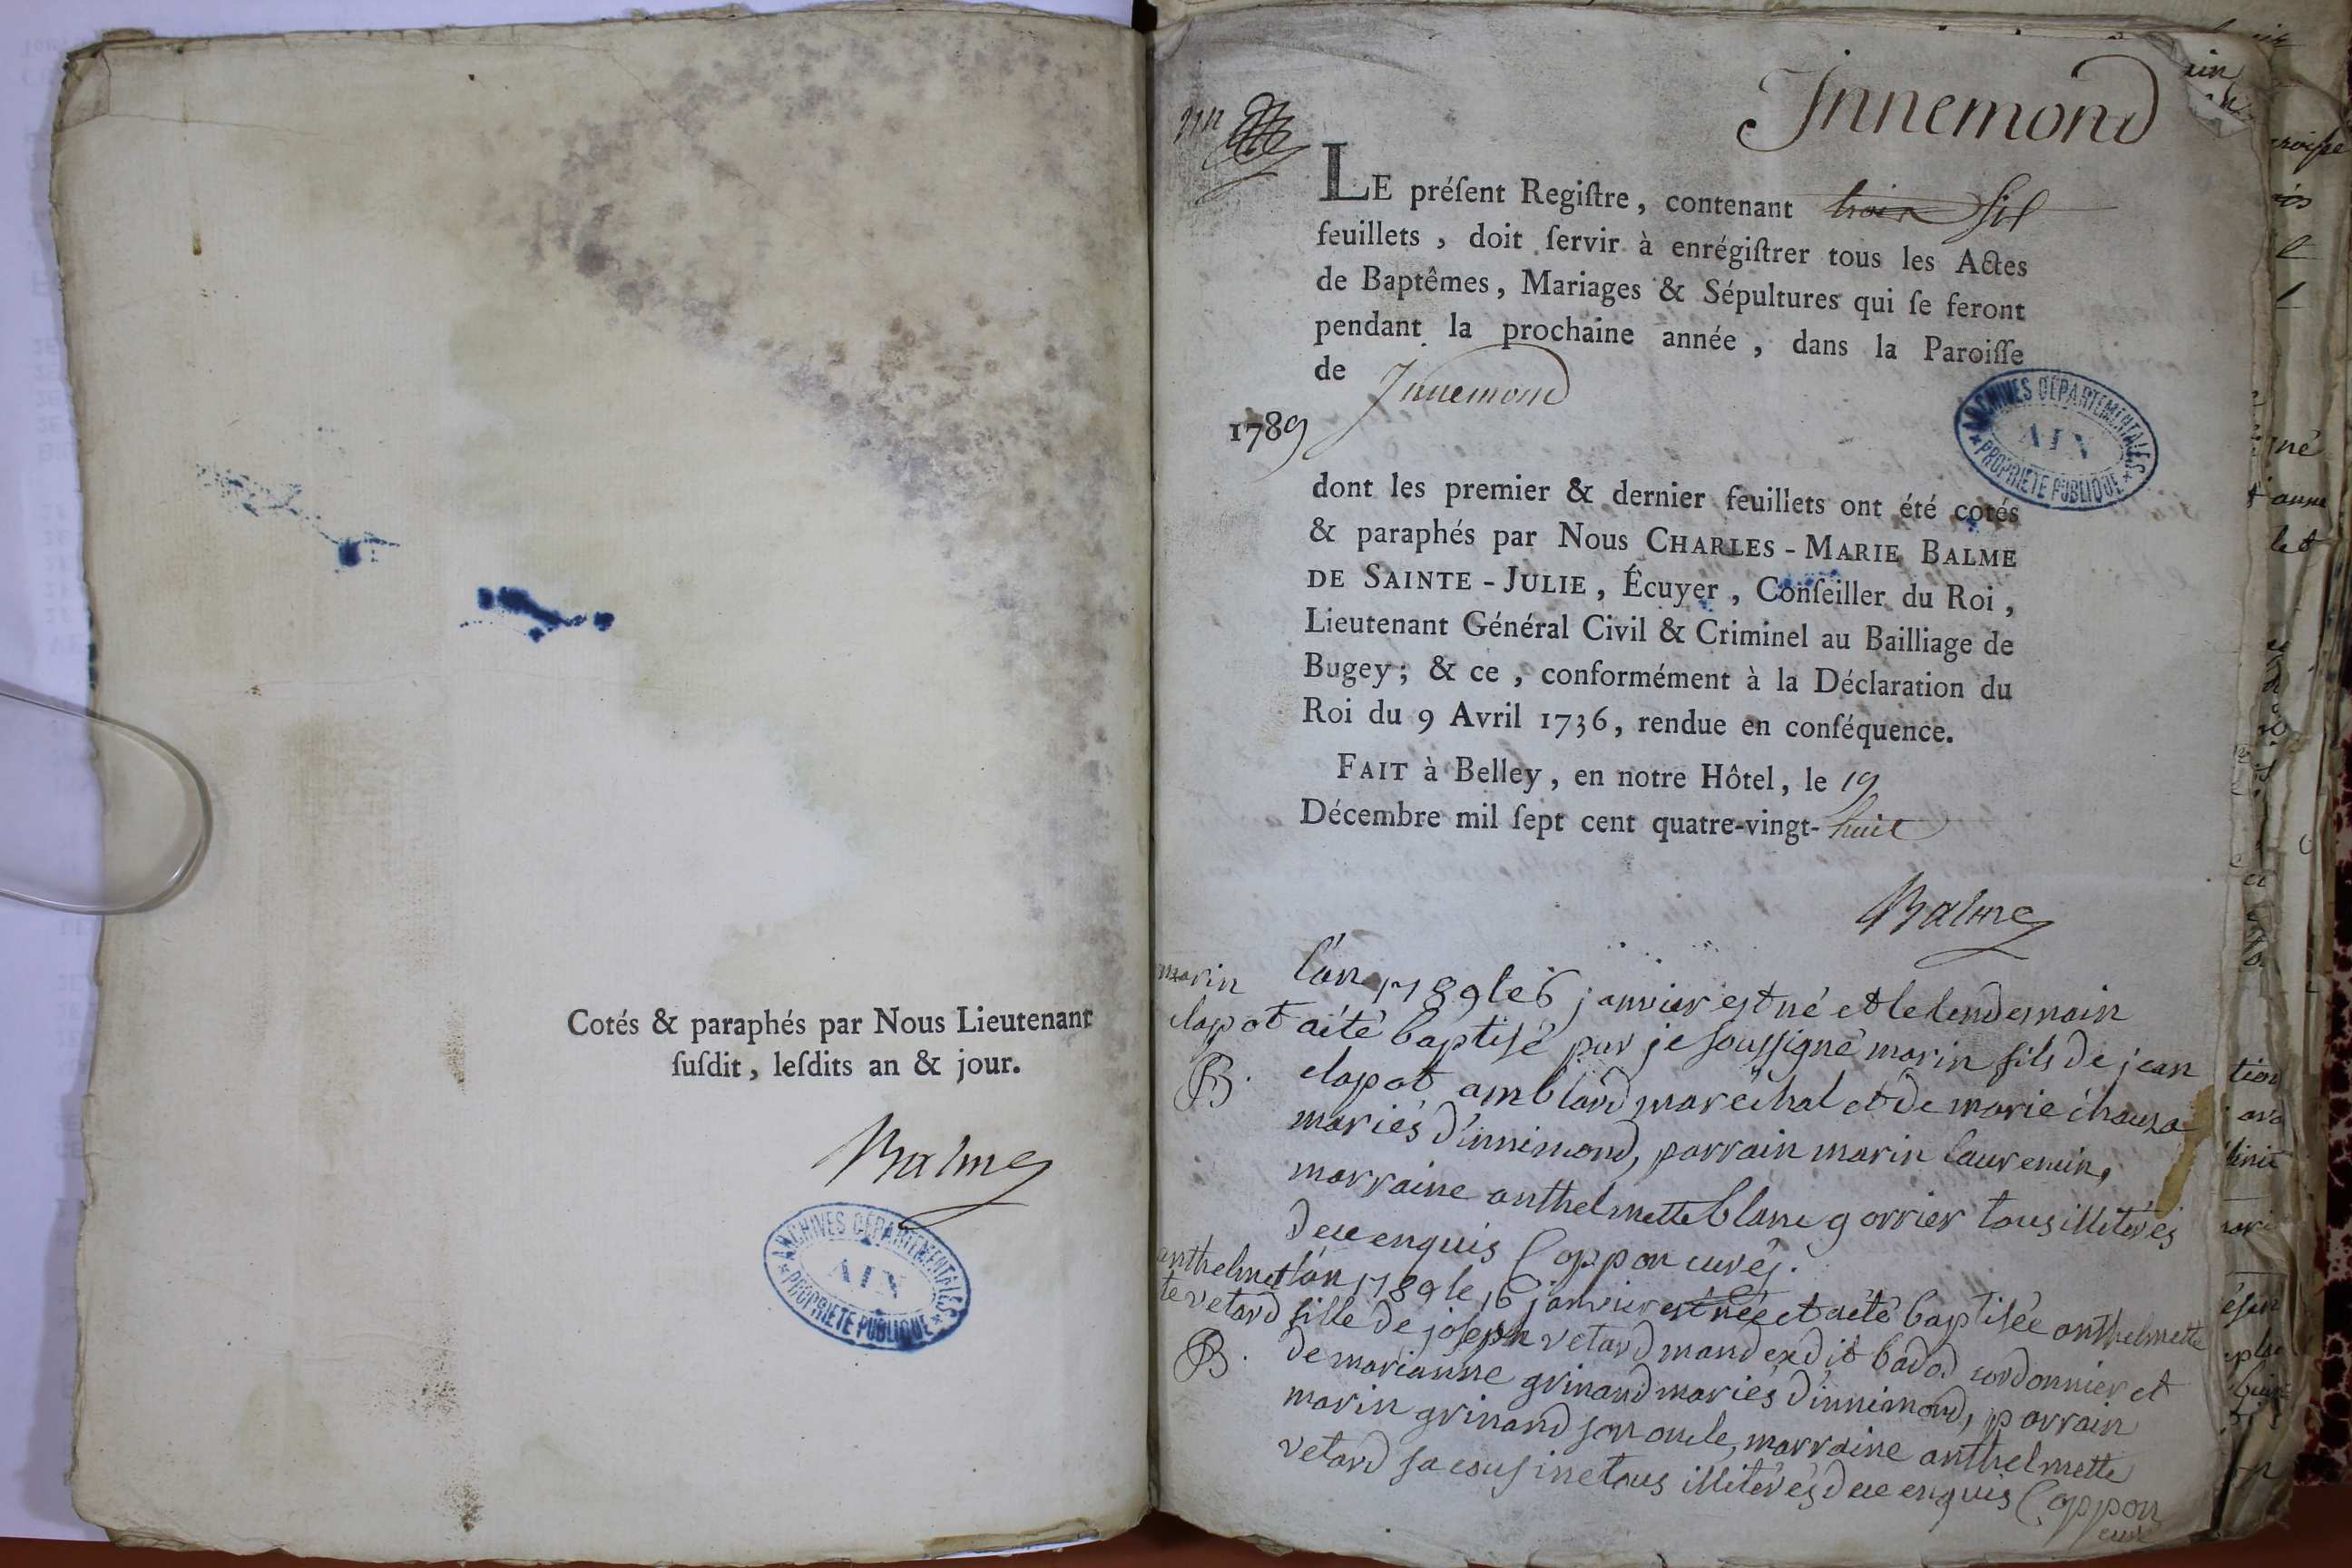 Cotés & paraphés par Nous Lieutenant
ſuſdit, leſdits an & jour.
Balme
ARCHIVES DÉPARTEMENTALES
AIN
PROPRIETE PUBLIQUE
Innemond
LE préſent Regiſtre, contenant trois six
feuillets, doit ſervir à enrégiſtrer tous les Actes
de Baptêmes, Mariages & Sépultures qui ſe feront
pendant la prochaine année, dans la Paroiſſe
de Innemond
1789
ARCHIVES DÉPARTEMENTALES
AIN
PROPRIETE PUBLIQUE
dont les premier & dernier feuillets ont été cotés
& paraphés par Nous CHARLES-MARIE BALME
DE SAINTE-JULIE, Écuyer, Conſeiller du Roi,
Lieutenant Général Civil & Criminel au Bailliage de
Bugey; & ce, conformément à la Déclaration du
Roi du 9 Avril 1736, rendue en conſéquence.
FAIT à Belley, en notre Hôtel, le 19
Décembre mil ſept cent quatre-vingt-huit
Balme
marin
clapot
B.
l'an 1789 le 6 janvier est né et le lendemain
a été baptisé par je soussigné marin fils de jean
clapot amblard maréchal et de marie
mariés d'innimond, parrain marin
marraine anthelmette blanc gorrier tous illitérés
de ce enquis Coppon curé.
anthelmet
te vetard
B.
l'an 1789 le 16 janvier est née et a été baptisée anthelmette
fille de joseph vetard cordonnier et
de marianne grinand mariés d'innimond, parrain
marin grinand son oncle, marraine anthelmette
vetard sa cousine tous illitérés de ce enquis Coppon
curé